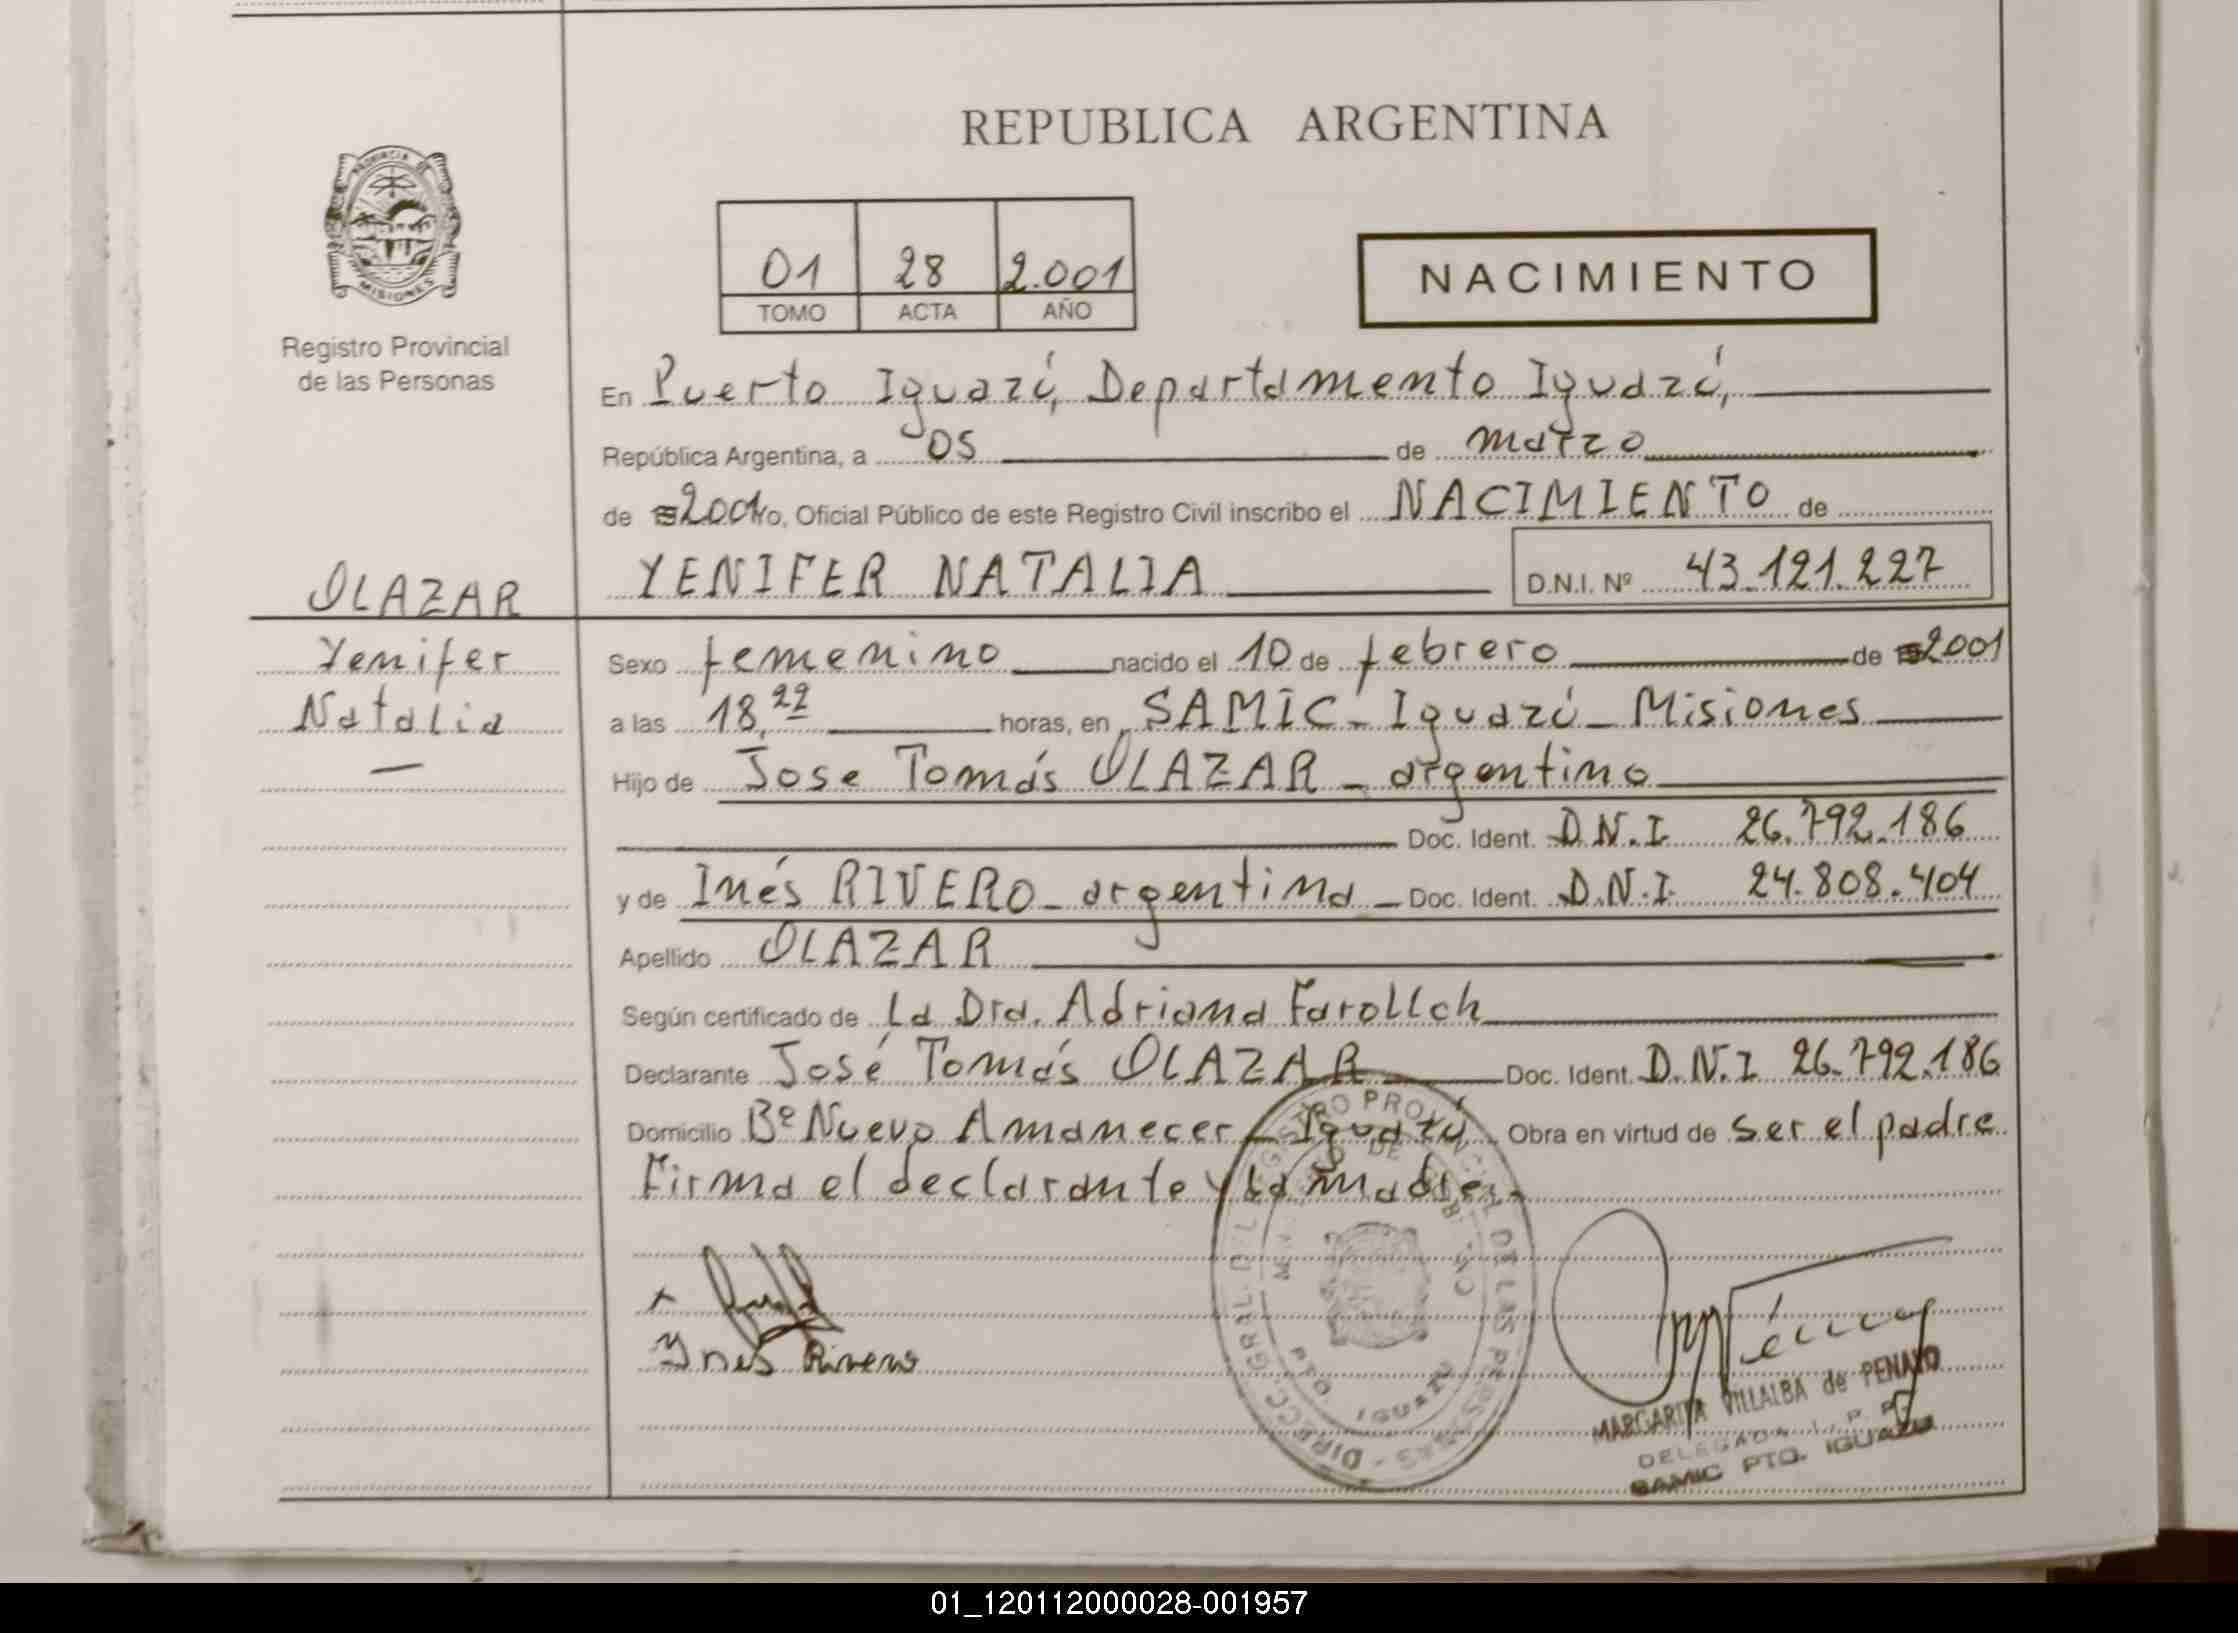 REPUBLICA ARGENTINA
PROVINCIA DE
MISIONES
Registro Provincial
de las Personas
01 28 2.001
TOMO ACTA AÑO
NACIMIENTO
En Puerto Iguazú, Departamento Iguazú,
República Argentina, a 05 de marzo
de 2001 yo, Oficial Público de este Registro Civil inscribo el NACIMIENTO de
YENIFER NATALIA D.N.I. Nº 43.121.227
OLAZAR
Yenifer
Natalia
Sexo femenino nacido el 10 de febrero de 2001
a las 18,22 horas, en SAMIC - Iguazú - Misiones
Hijo de Jose Tomás OLAZAR - argentino
Doc. Ident. D.N.I. 26.792.186
y de Inés RIVERO - argentina - Doc. Ident. D.N.I. 24.808.404
Apellido OLAZAR
Según certificado de La Dra. Adriana Farollch
Declarante José Tomás OLAZAR Doc. Ident. D.N.I 26.792.186
Domicilio Bº Nuevo Amanecer - Iguazú Obra en virtud de ser el padre
Firma el declarante y la madre.
Ynes Rivero
DIRECC. GRAL. DEL REGISTRO PROVINCIAL DE LAS PERSONAS
PTO. IGUAZU
MARGARITA VILLALBA de PENAYO
DELEGADA R. P. P.
SAMIC PTO. IGUAZU
01_120112000028-001957